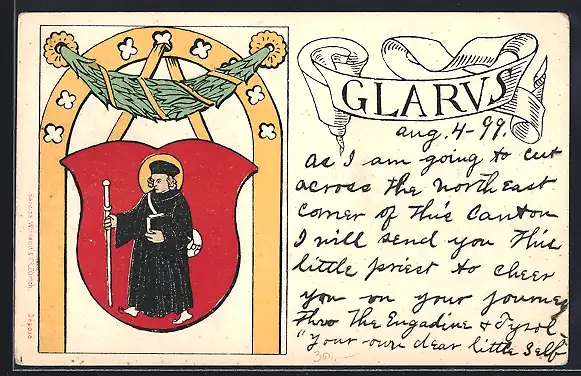 GLARVS
Aug. 4-99.
As I am going to cut
across the northeast
corner of this Canton
I will send you this
little priest to cheer
you on your journey
Thro the Engadine & Tyrol-
"Your own dear little Self"
30.
Déposé